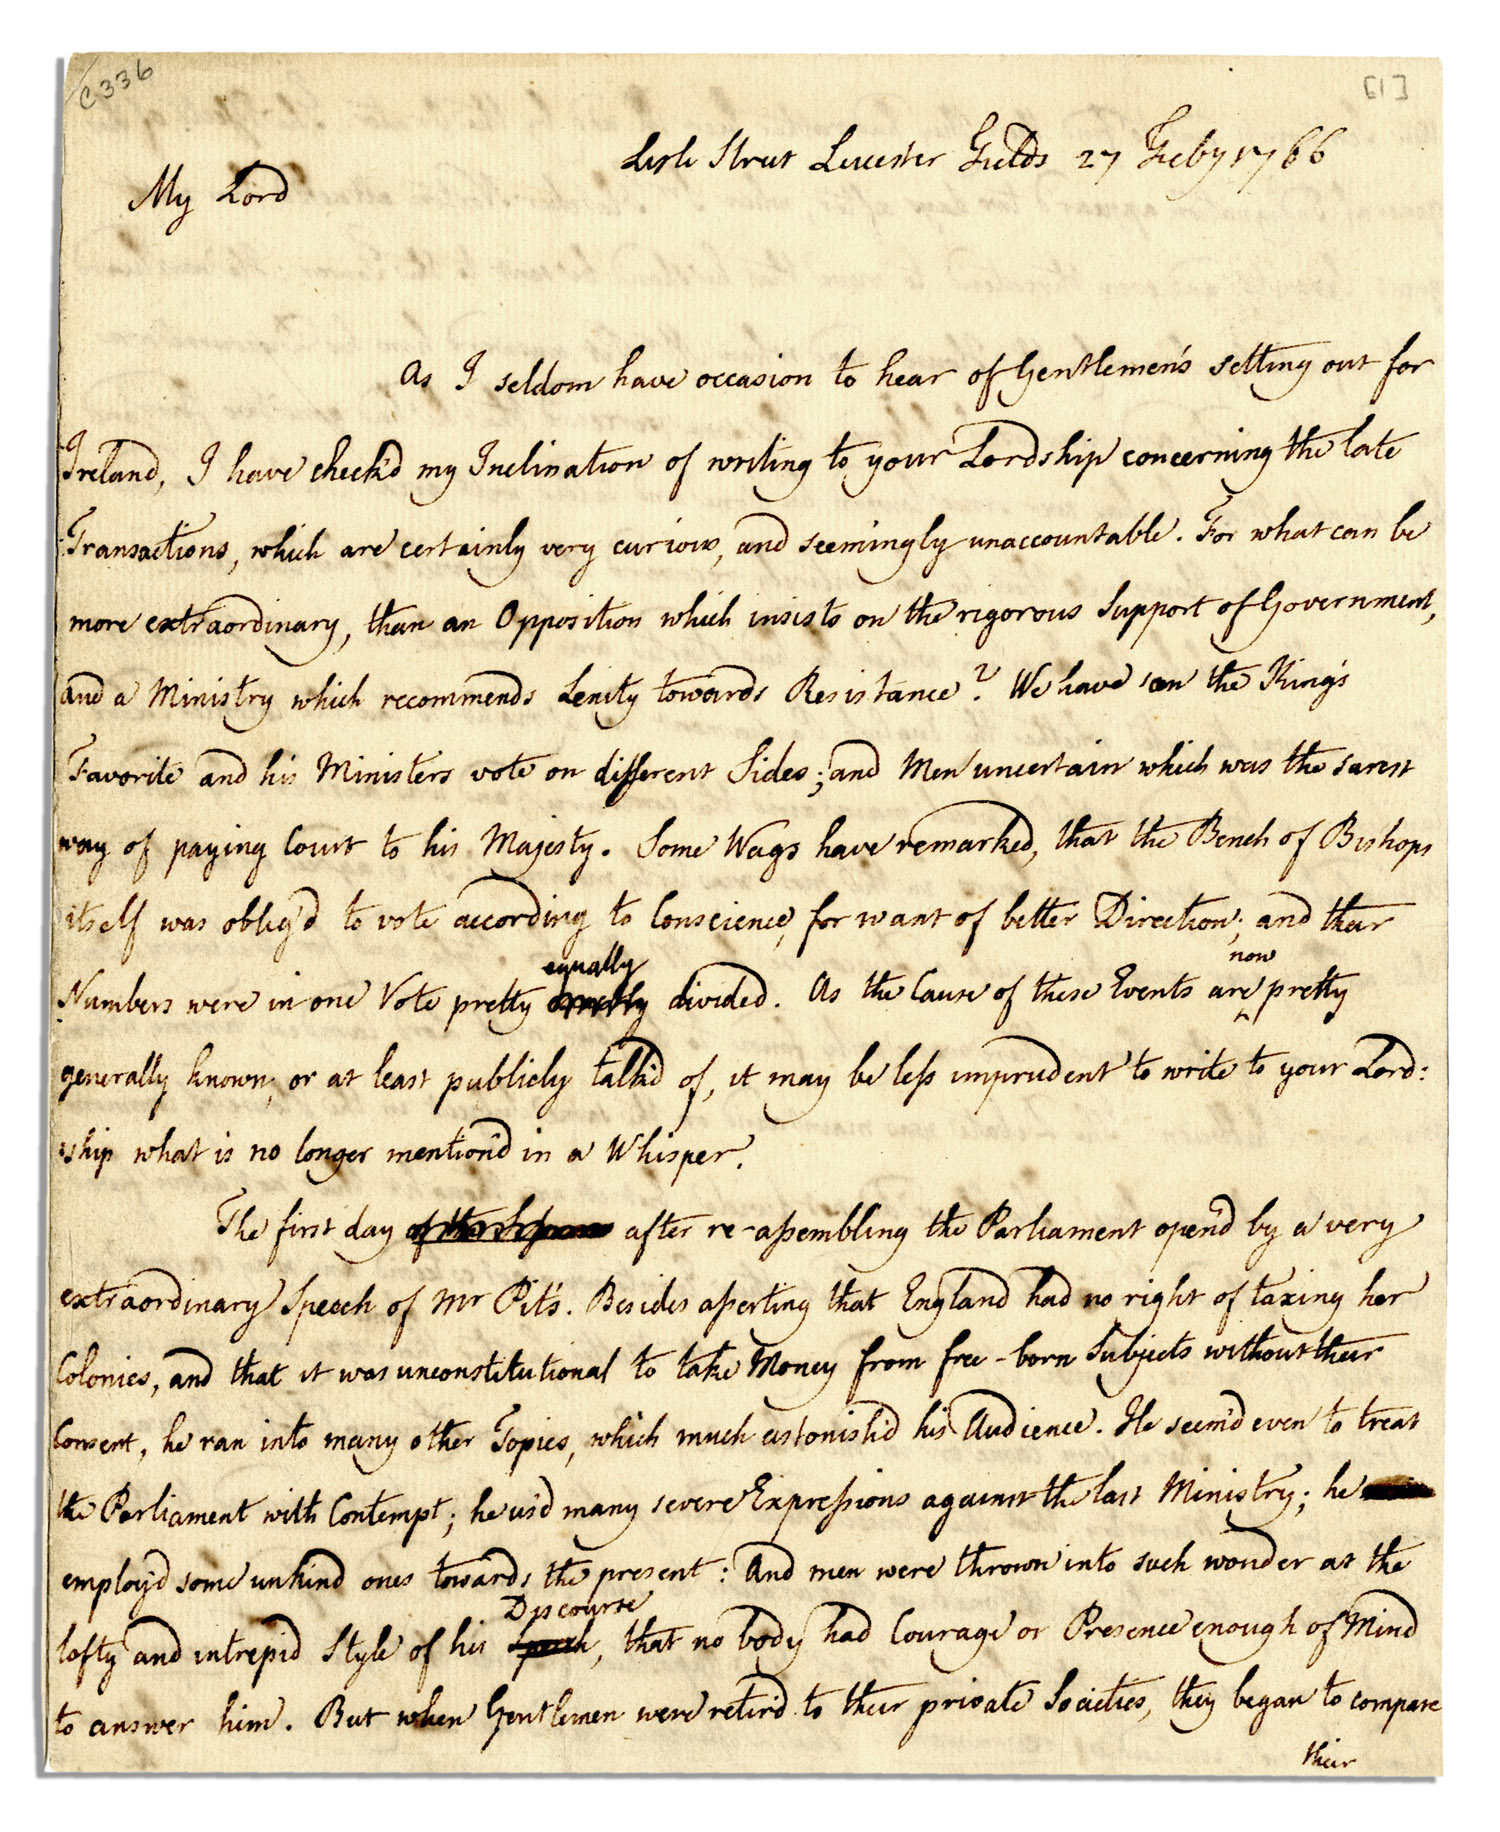 C336
[1]
Lisle Street Leicester Fields 27 Feby 1766
My Lord
As I seldom have occasion to hear of Gentlemen's setting out for
Ireland, I have check'd my Inclination of writing to your Lordship concerning the late
Transactions, which are certainly very curious, and seemingly unaccountable. For what can be
more extraordinary, than an Opposition which insists on the rigorous Support of Government,
and a Ministry which recommends Lenity towards Resistance? We have seen the King's
Favorite and his Ministers vote on different Sides; and Men uncertain which was the surest
way of paying Court to his Majesty. Some Wags have remarked, that the Bench of Bishops
itself was oblig'd to vote according to Conscience, for want of better Direction; and their
now
equally
Numbers were in one Vote pretty divided. As the Cause of these Events are pretty
generally known, or at least publicly talk'd of, it may be less imprudent to write to your Lord:
ship what is no longer mention'd in a Whisper.
The first day after re-assembling the Parliament open'd by a very
extraordinary Speech of Mr Pit's. Besides asserting that England had no right of taxing her
Colonies, and that it was unconstitutional to take Money from free-born Subjects without their
Consent, he ran into many other Topics, which much astonish'd his Audience. He seem'd even to treat
the Parliament with Contempt; he us'd many severe Expressions against the last Ministry; he
employ'd some unkind ones towards the present: And men were thrown into such wonder at the
Discourse
lofty and intrepid Style of his Speech, that no body had Courage or Presence enough of Mind
to answer him. But when Gentlemen were retir'd to their private Societies, they began to compare
their